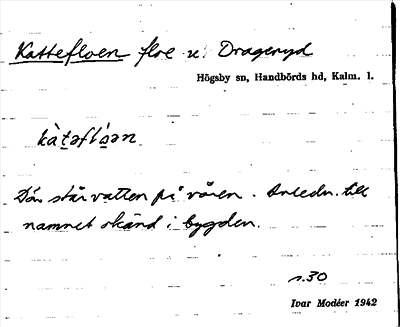 Kattefloen floe u. Drageryd
Högsby sn, Handbörds hd, Kalm. l.
kàt̠əfló̠ən
Där står vatten på våren. Anledn. till
namnet okänd i bygden.
s.30
Ivar Modéer 1942